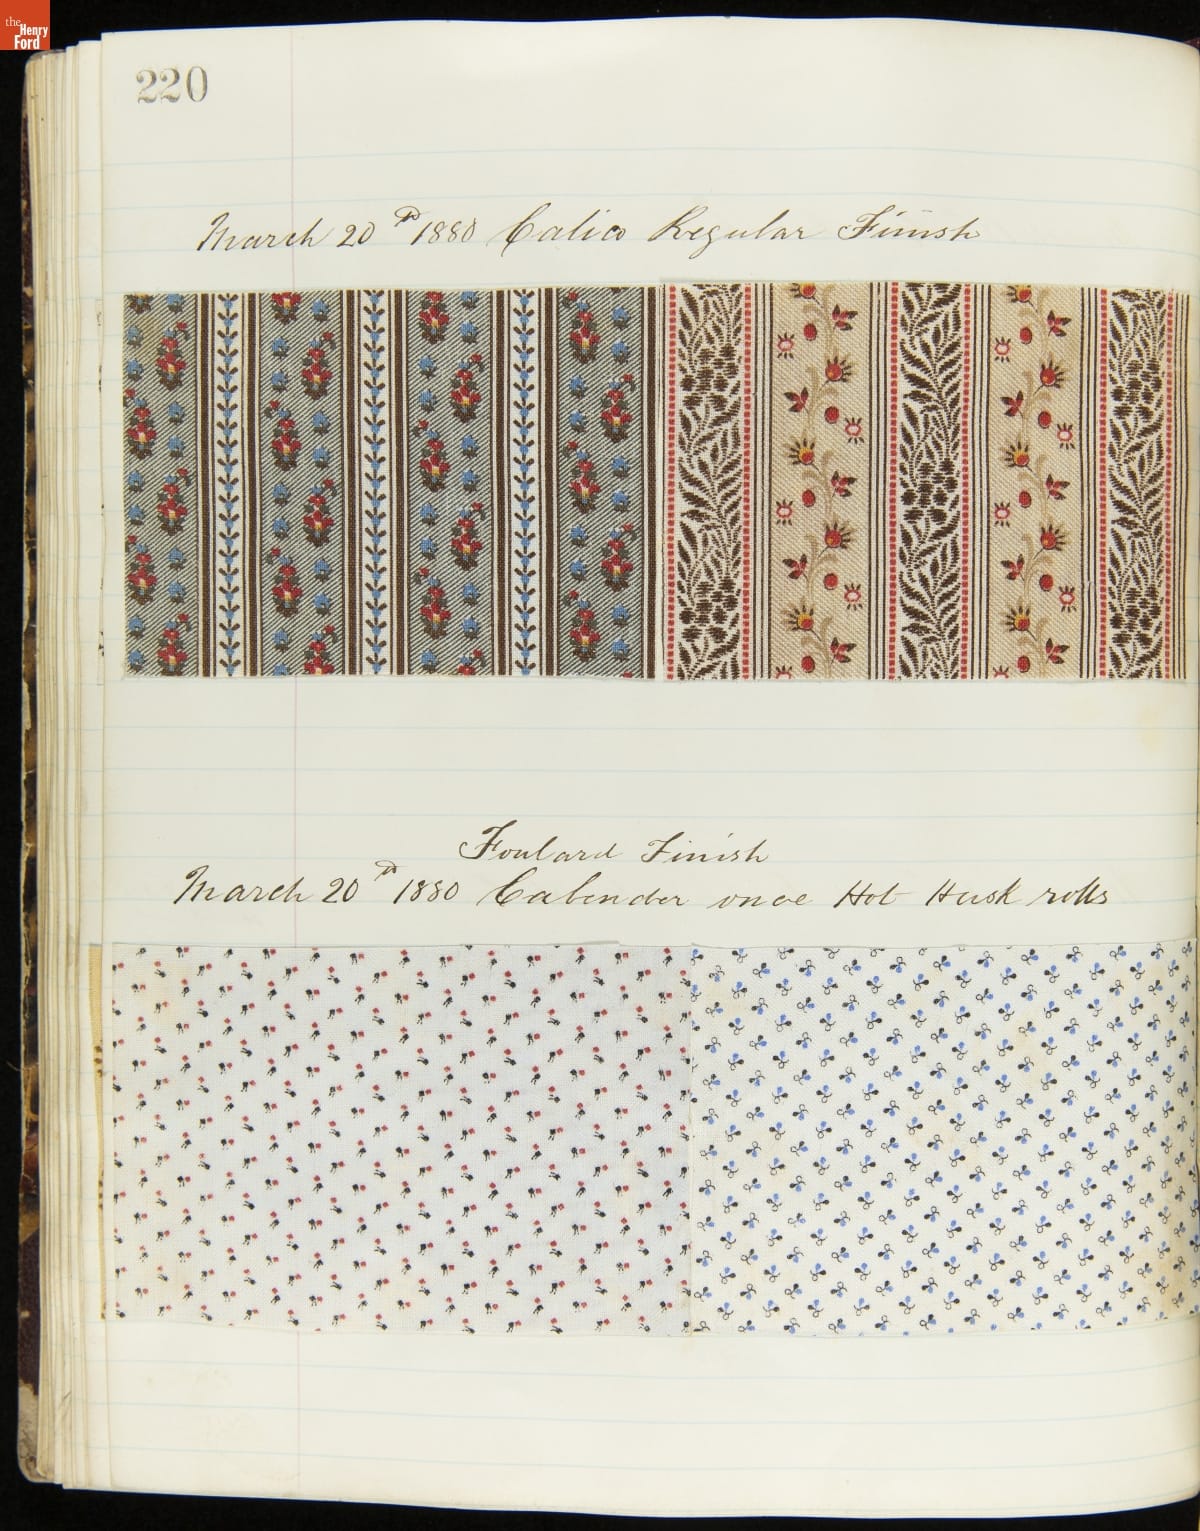 the
Henry
Ford
220
March 20th 1880 Calico Regular Finish
Foulard Finish
March 20th 1880 Calender once Hot Husk rolls